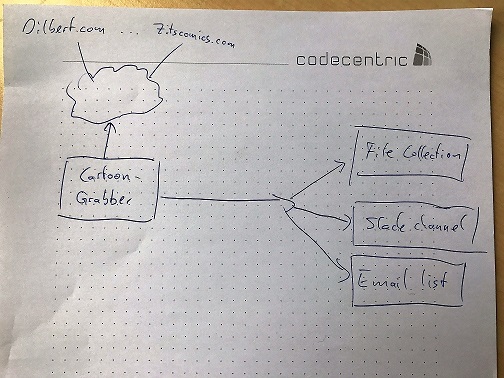 Dilbert.com ... Zitscomics.com
codecentric
Cartoon-
Grabber
File Collection
Slack channel
Email list